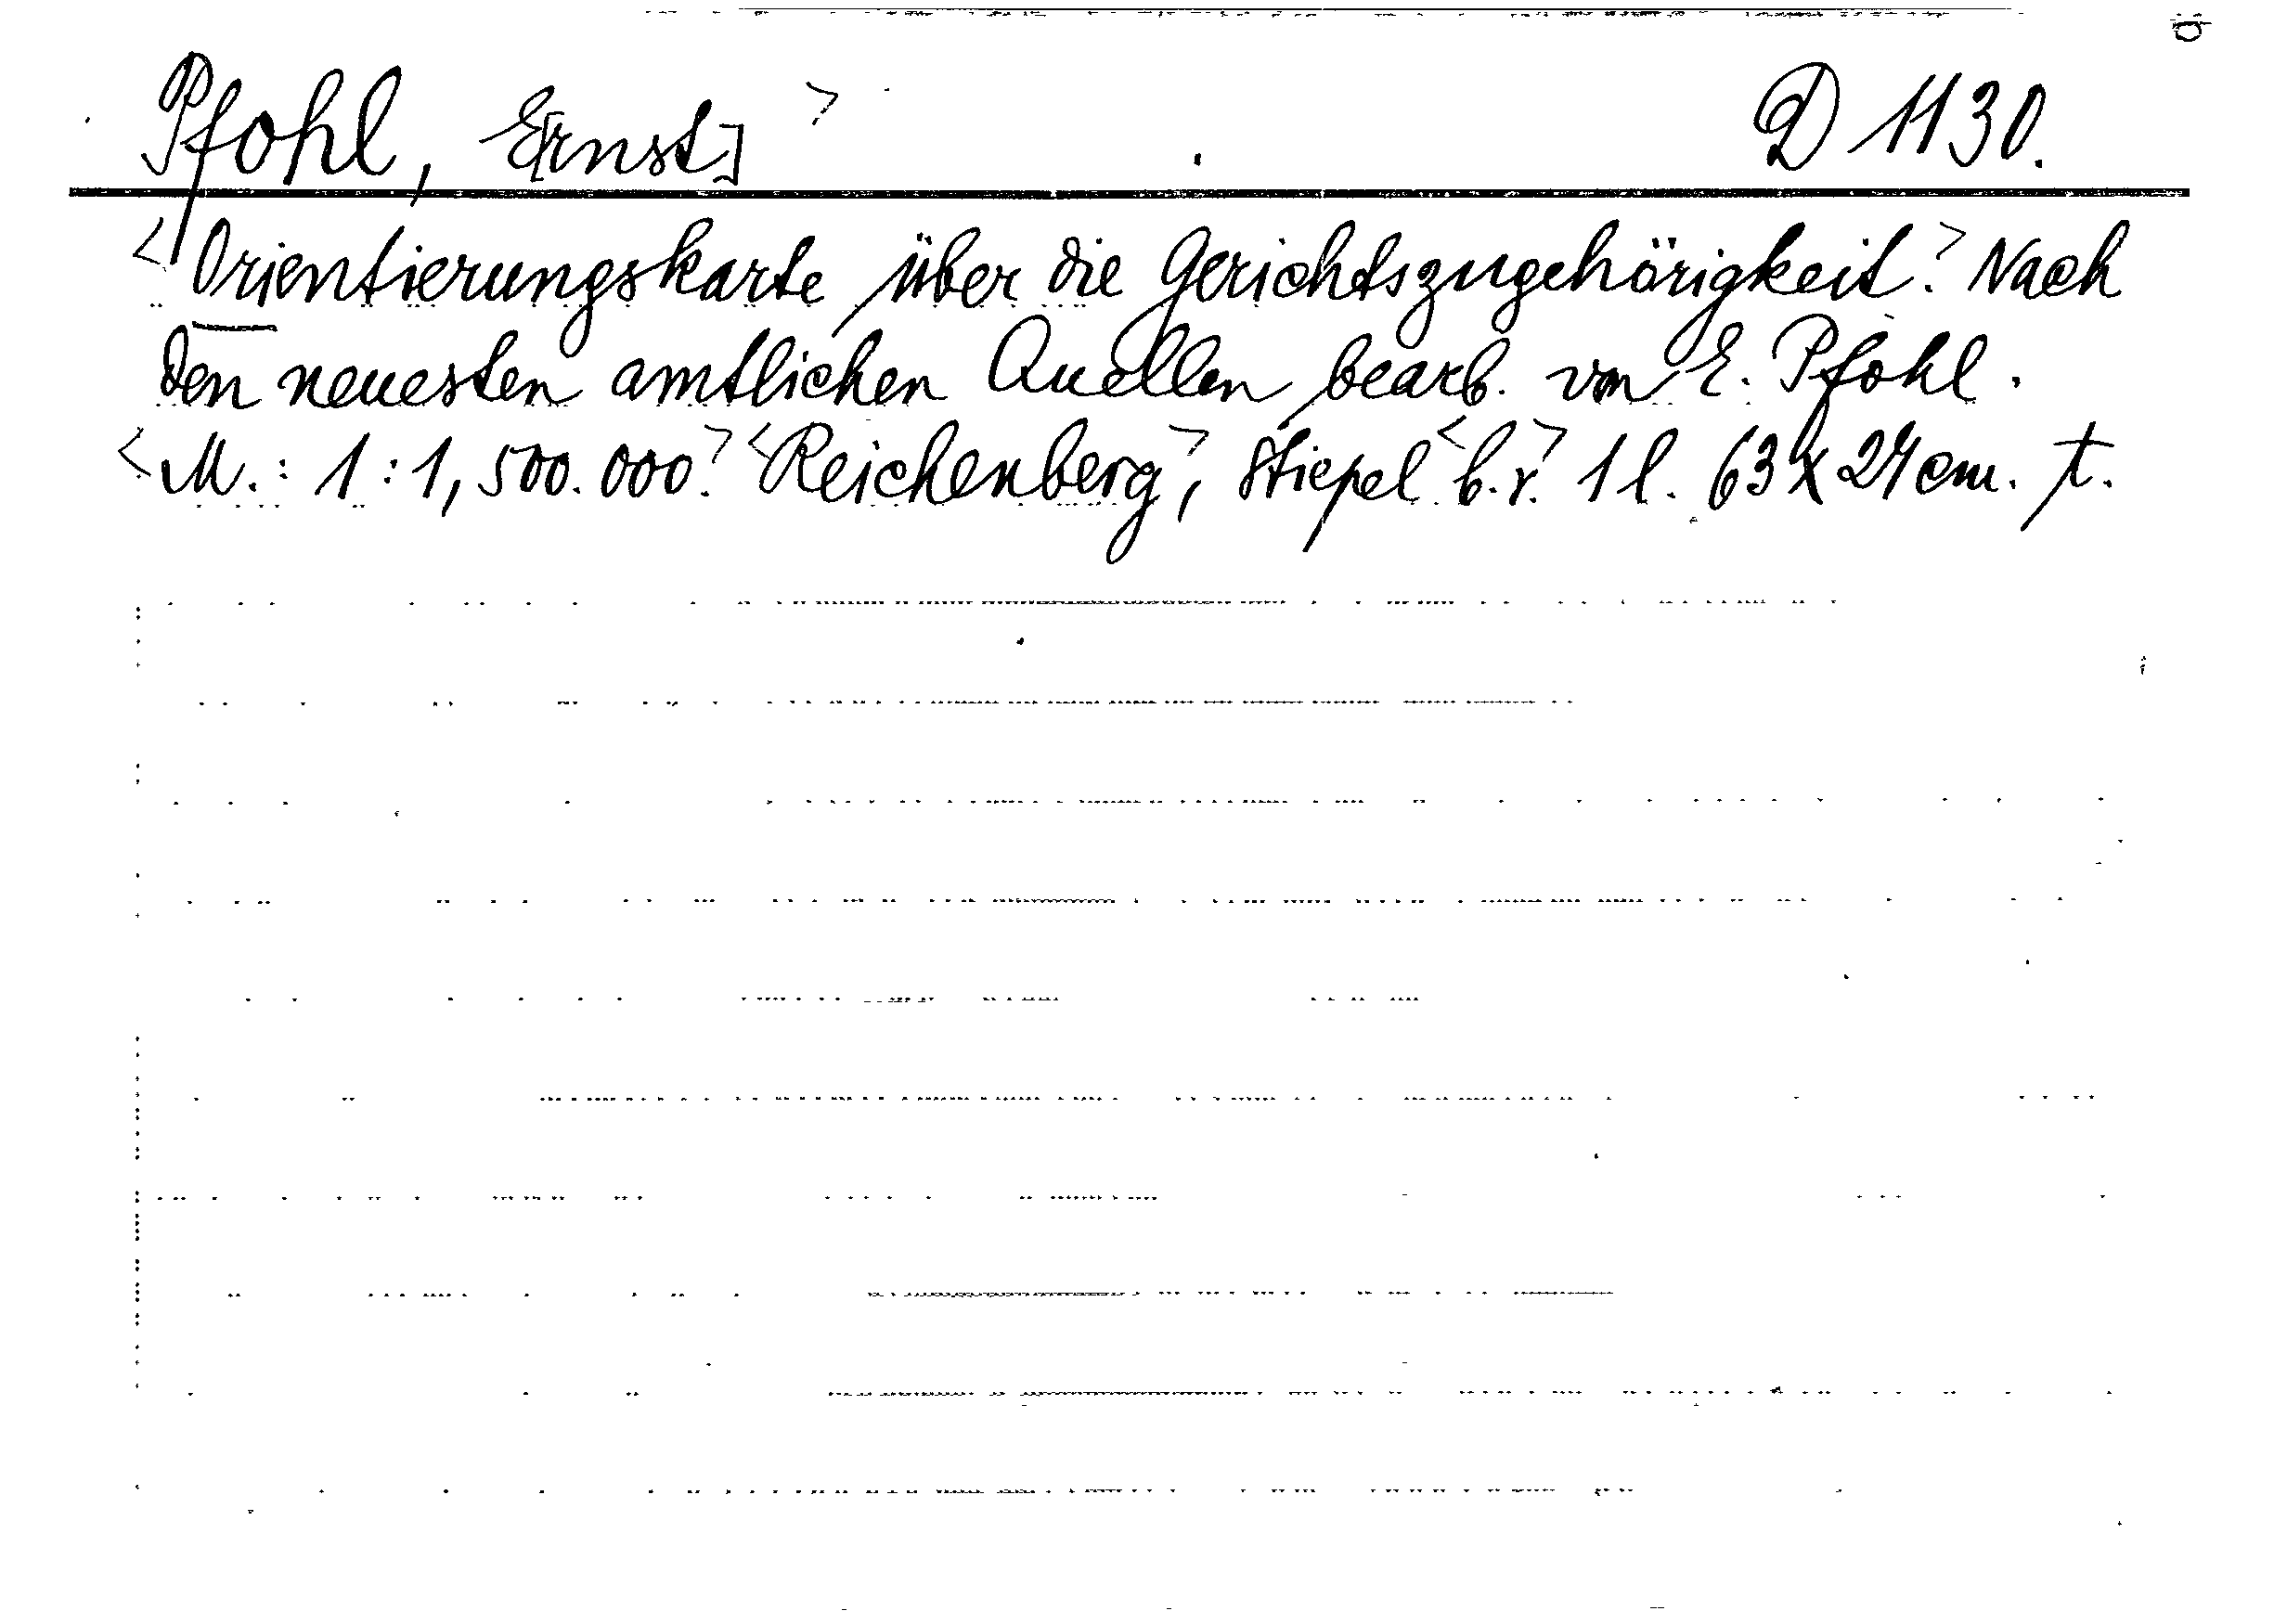 Pfohl, E[rnst]> D 1130.
<Orientierungskarte über die Gerichtszugehörigkeit.> Nach
den neuesten amtlichen Quellen bearb. von E. Pfohl.
<M.: 1:1,500.000.> <Reichenberg>, Stiepel <b.r.> 1 l. 63 x 24 cm. t.